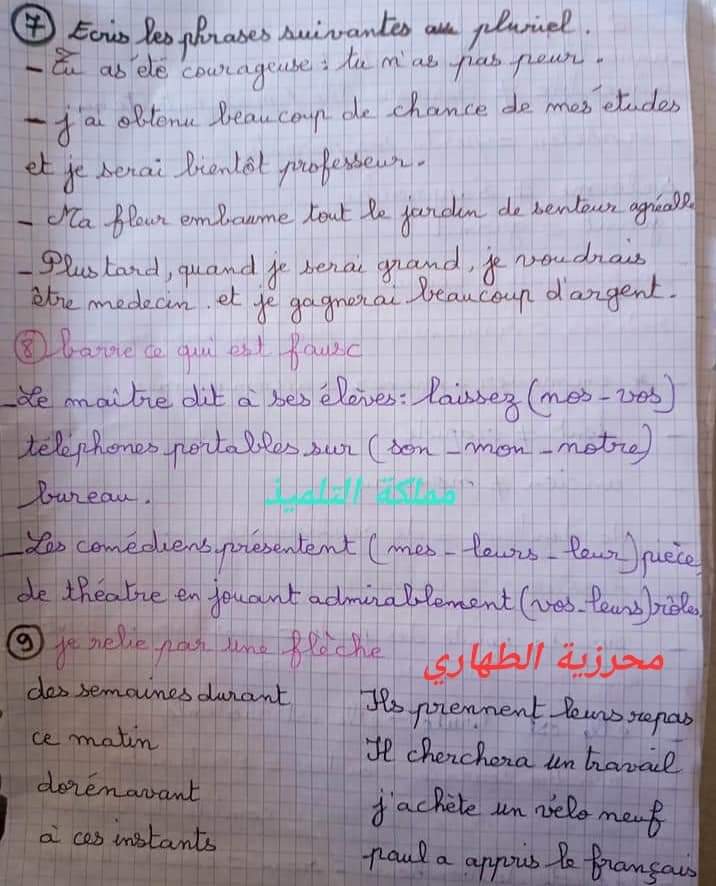 ⑦ Ecris les phrases suivantes au pluriel.
- Tu as été courageuse : tu n'as pas peur.
- j'ai obtenu beaucoup de chance de mes études
et je serai bientôt professeur.
- Ma fleur embaume tout le jardin de senteur agréable.
- Plus tard, quand je serai grand, je voudrais
être medecin. et je gagnerai beaucoup d'argent.
⑧ barre ce qui est faux
- Le maître dit à ses élèves : laissez (nos - vos)
téléphones portables sur (son - mon - notre)
bureau.
مملكة التلميذ
- Les comédiens présentent (mes - leurs - leur) pièce
de théatre en jouant admirablement (vos - leurs) rôles
⑨ je relie par une flèche
محرزية الطهاري
des semaines durant
Ils prennent leurs repas
ce matin
Il cherchera un travail
dorénavant
j'achète un vélo neuf
à ces instants
paul a appris le français